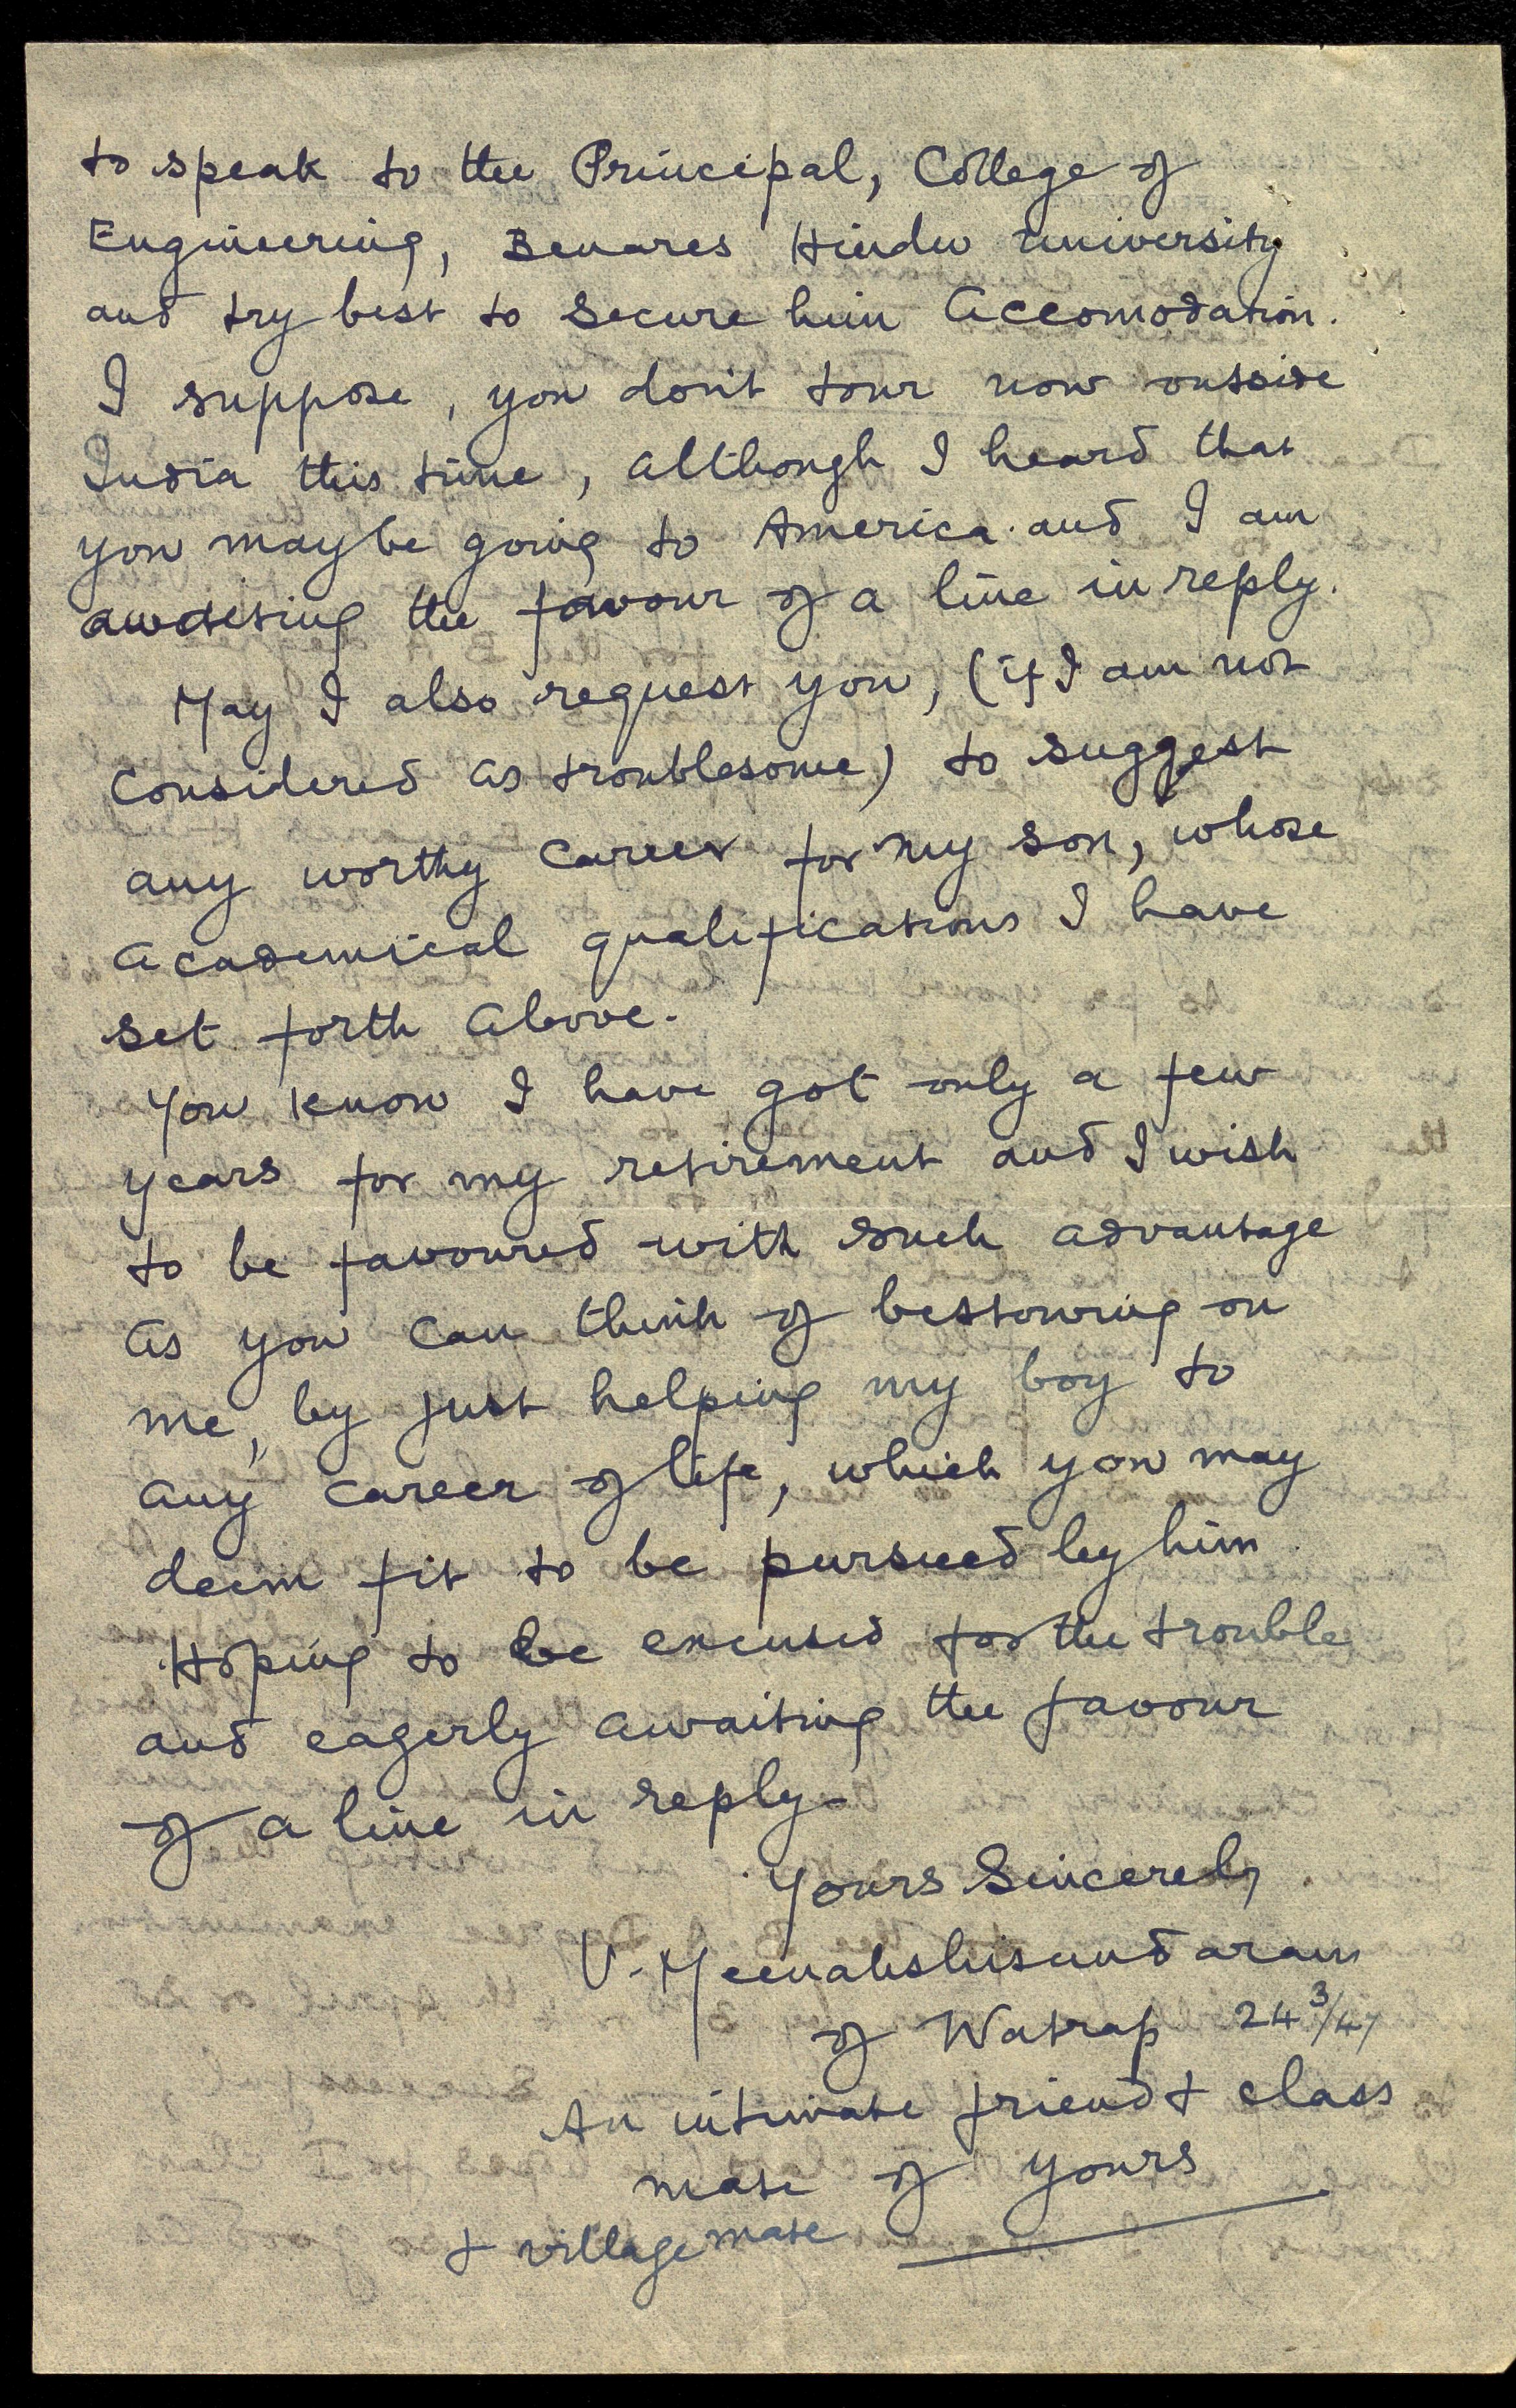 to speak to the Principal, College of
Engineering, Benares Hindu University
and try best to secure him accomodation.
I suppose, you don't tour now outside
India this time, although I heard that
you maybe going to America and I am
awaiting the favour of a line in reply.
May I also request you, (if I am not
considered as troublesome) to suggest
any worthy career for my son, whose
academical qualifications I have
set forth above.
You know I have got only a few
years for my retirement and I wish
to be favoured with such advantage
as you can think of bestowing on
me, by just helping my boy to
any career of life, which you may
deem fit to be pursued by him.
Hoping to be excused for the trouble
and eagerly awaiting the favour
of a line in reply-
Yours Sincerely
V. Meenakshisundaram
of Watrap 24 3/47
An intimate friend & class
mate of yours
& village mate